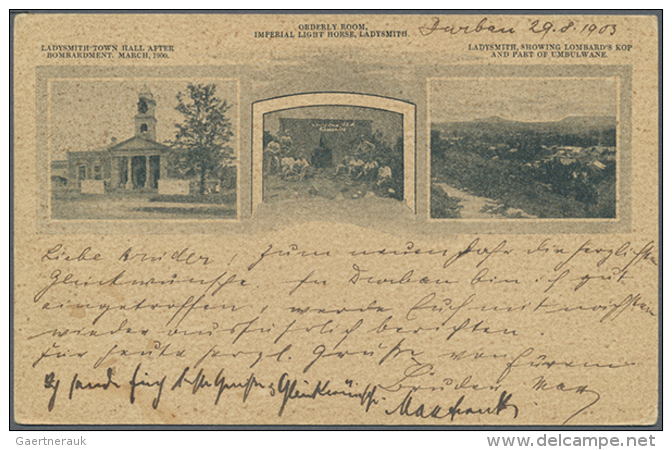 ORDERLY ROOM,
IMPERIAL LIGHT HORSE, LADYSMITH.
Durban 29.8.1903
LADYSMITH TOWN HALL AFTER
BOMBARDMENT. MARCH, 1900.
LADYSMITH, SHOWING LOMBARD'S KOP
AND PART OF UMBULWANE.
Liebe Brüder, zum neuen Jahr die herzlichsten
Glückwünsche. In Durban bin ich gut
eingetroffen, werde Euch mit nächstem
wieder ausführlich berichten.
Für heute herzl. Grüße von Eurem
Bruder Max
Ich sende Euch beste Grüße & Glückwünsche
Gaertnerauk
www.delcampe.net